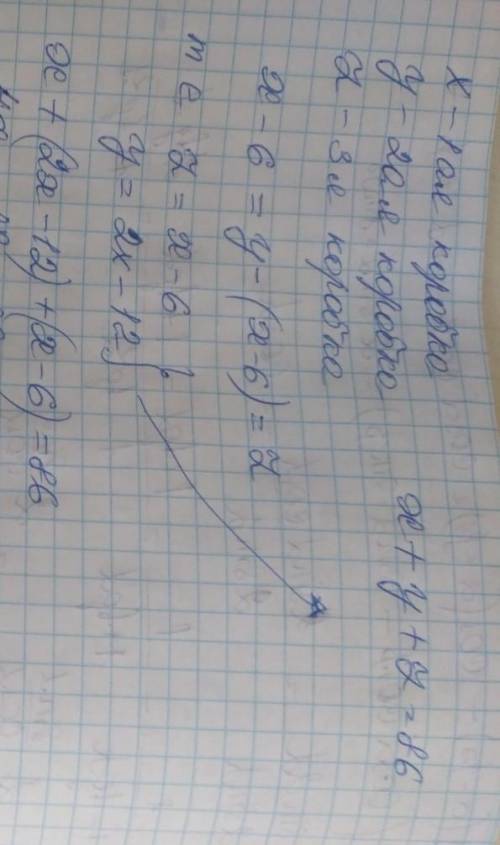 x - 1ая коробка
y - 2ая коробка
z - 3я коробка
x + y + z = 86
x - 6 = y - (x - 6) = z
т е z = x - 6
y = 2x - 12
x + (2x - 12) + (x - 6) = 86